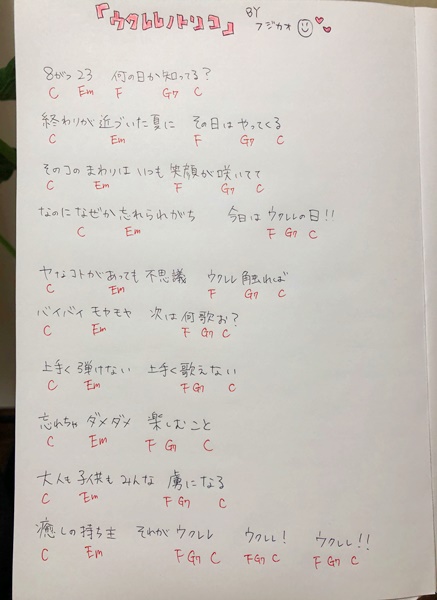 『ウクレレノトリコ』 BY フジカオ
8がつ23 何の日か知ってる?
C Em F G7 C
終わりが近づいた夏に その日はやってくる
C Em F G7 C
そのコのまわりはいつも笑顔が咲いてて
C Em F G7 C
なのになぜか忘れられがち 今日はウクレレの日!!
C Em F G7 C
ヤなコトがあっても不思議 ウクレレ触れれば
C Em F G7 C
バイバイモヤモヤ 次は何歌お?
C Em F G7 C
上手く弾けない 上手く歌えない
C Em F G7 C
忘れちゃダメダメ 楽しむこと
C Em F G7 C
大人も子供もみんな 虜になる
C Em F G7 C
癒しの持ち主 それがウクレレ ウクレレ! ウクレレ!!
C Em F G7 C F G7 C F G7 C